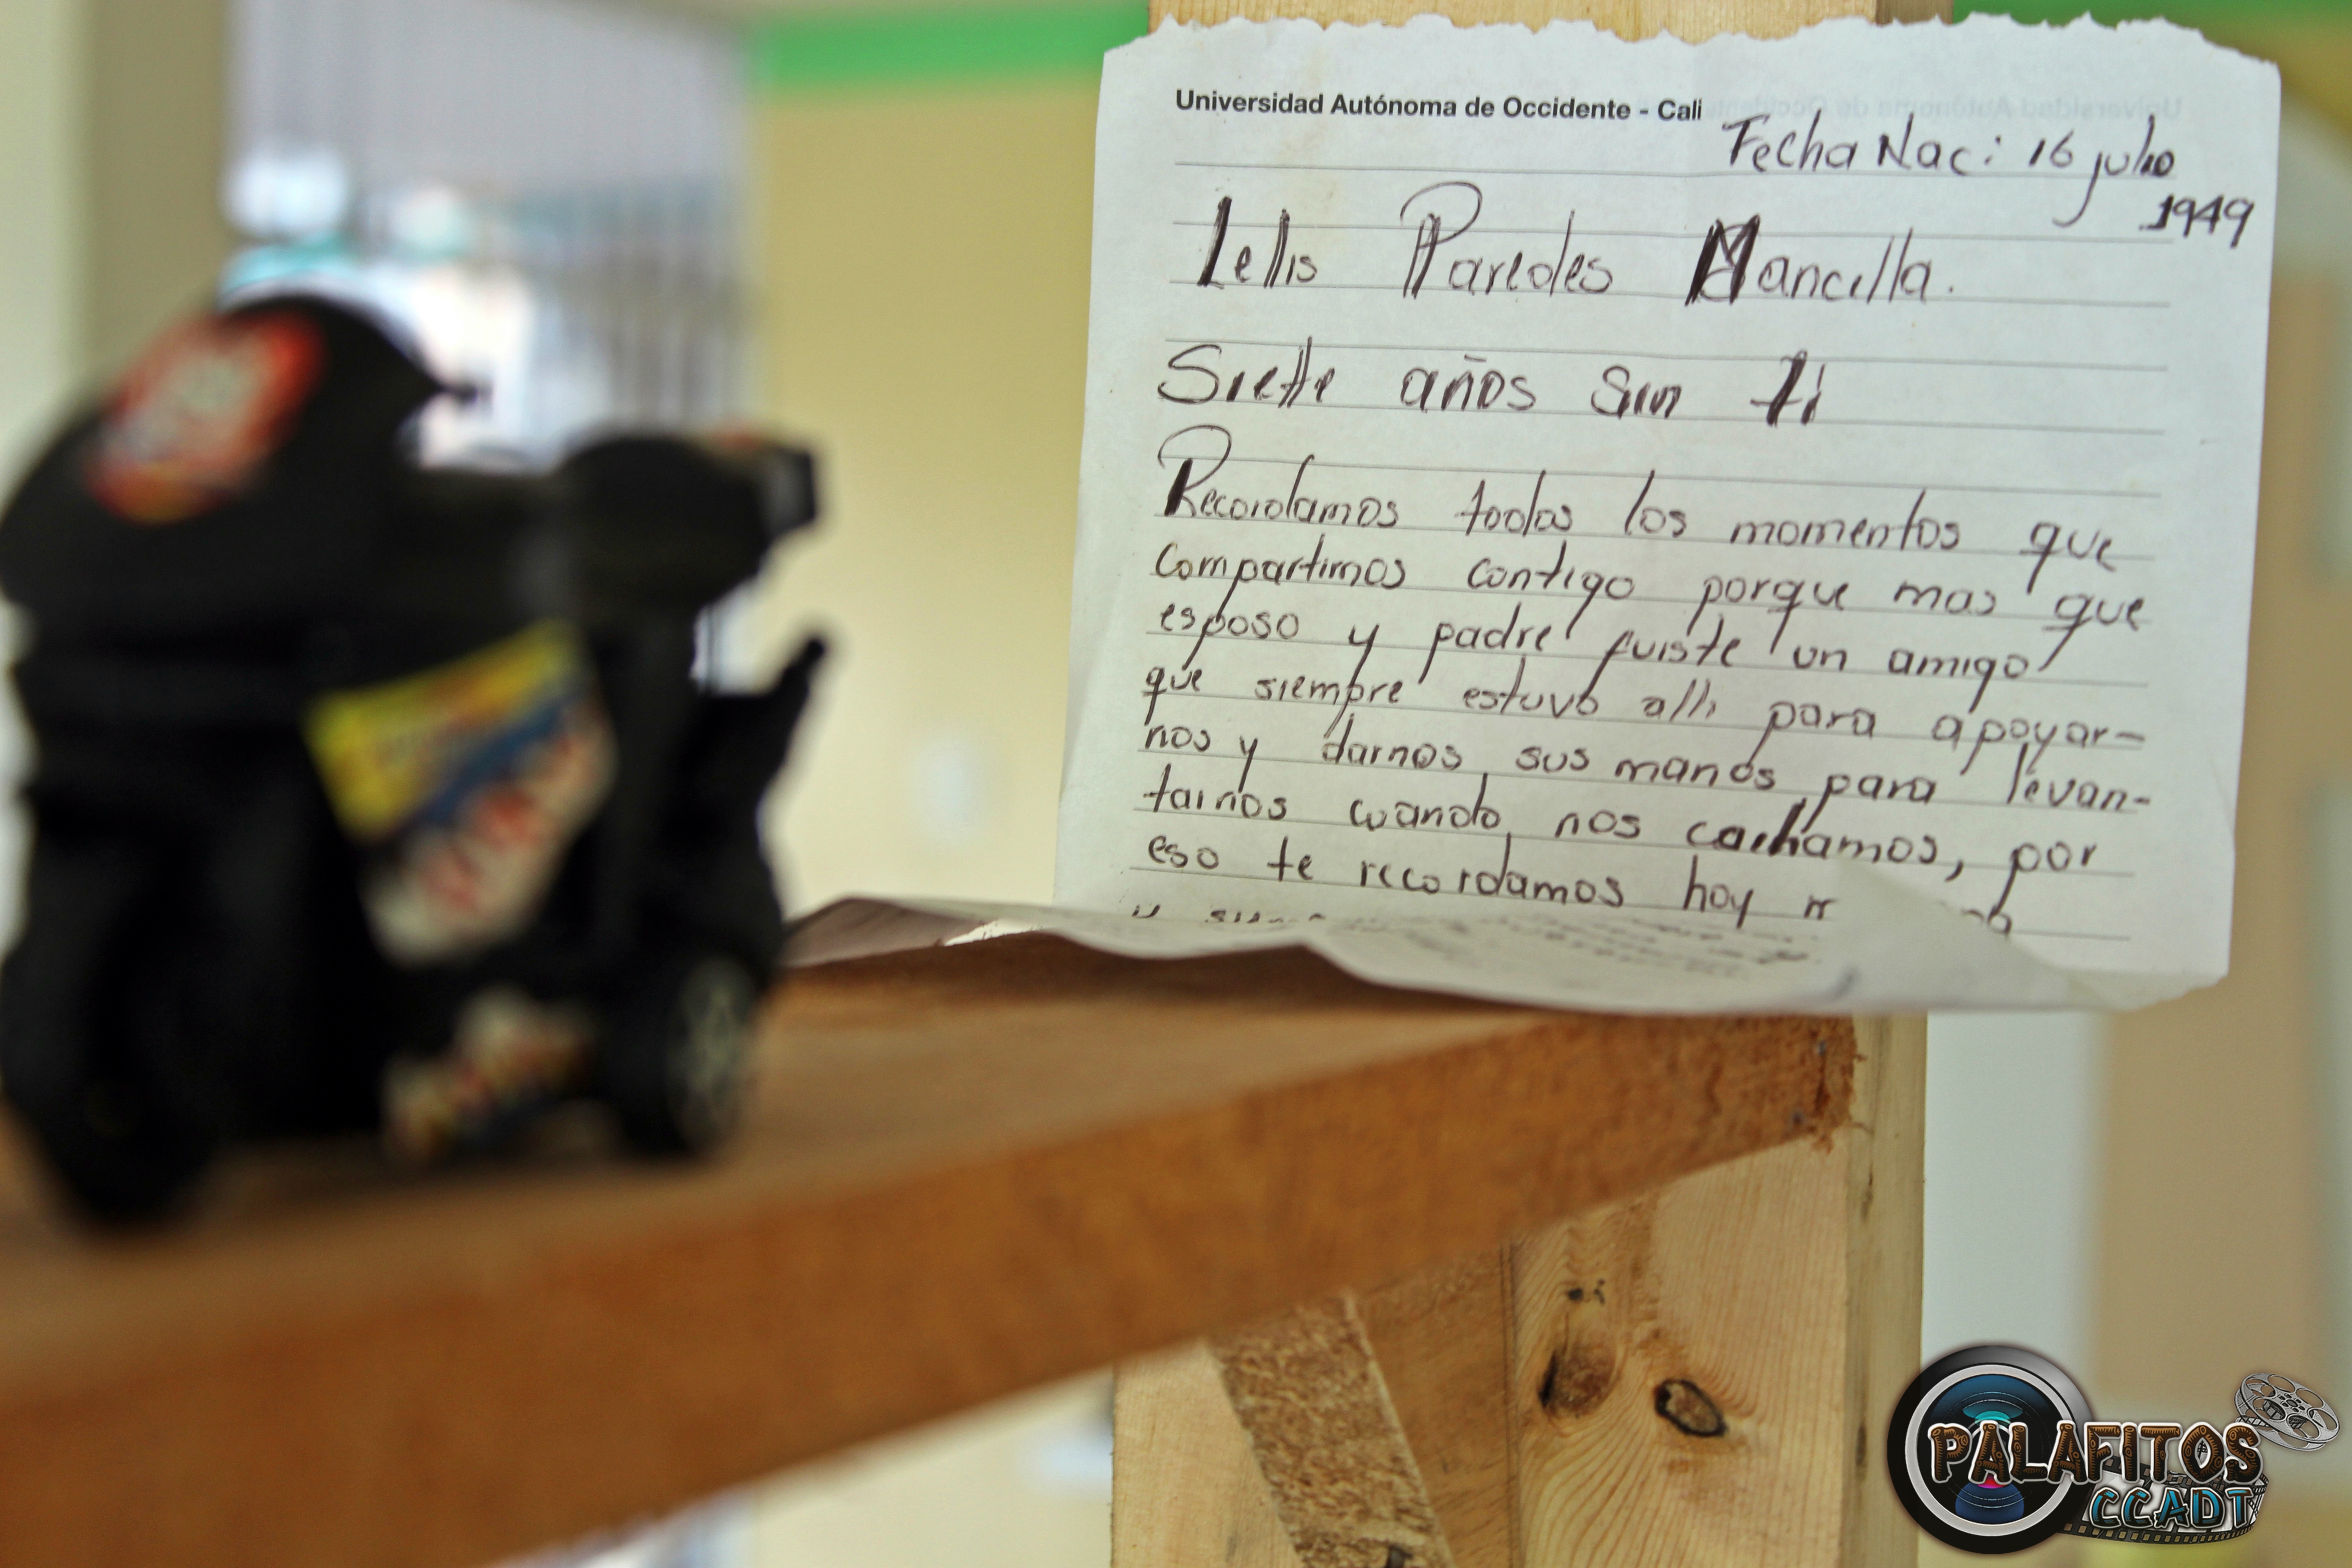 Universidad Autónoma de Occidente - Cali
Fecha Nac: 16 julio
1949
Lellis Paredes Mancilla.
Siette años sin ti
Recordamos todos los momentos que
compartimos contigo porque mas que
esposo y padre fuiste un amigo
que siempre estuvo alli para apoyar-
nos y darnos sus manos para levan-
tarnos cuando nos caihamos, por
eso te recordamos hoy
PALAFITOS
CCADT